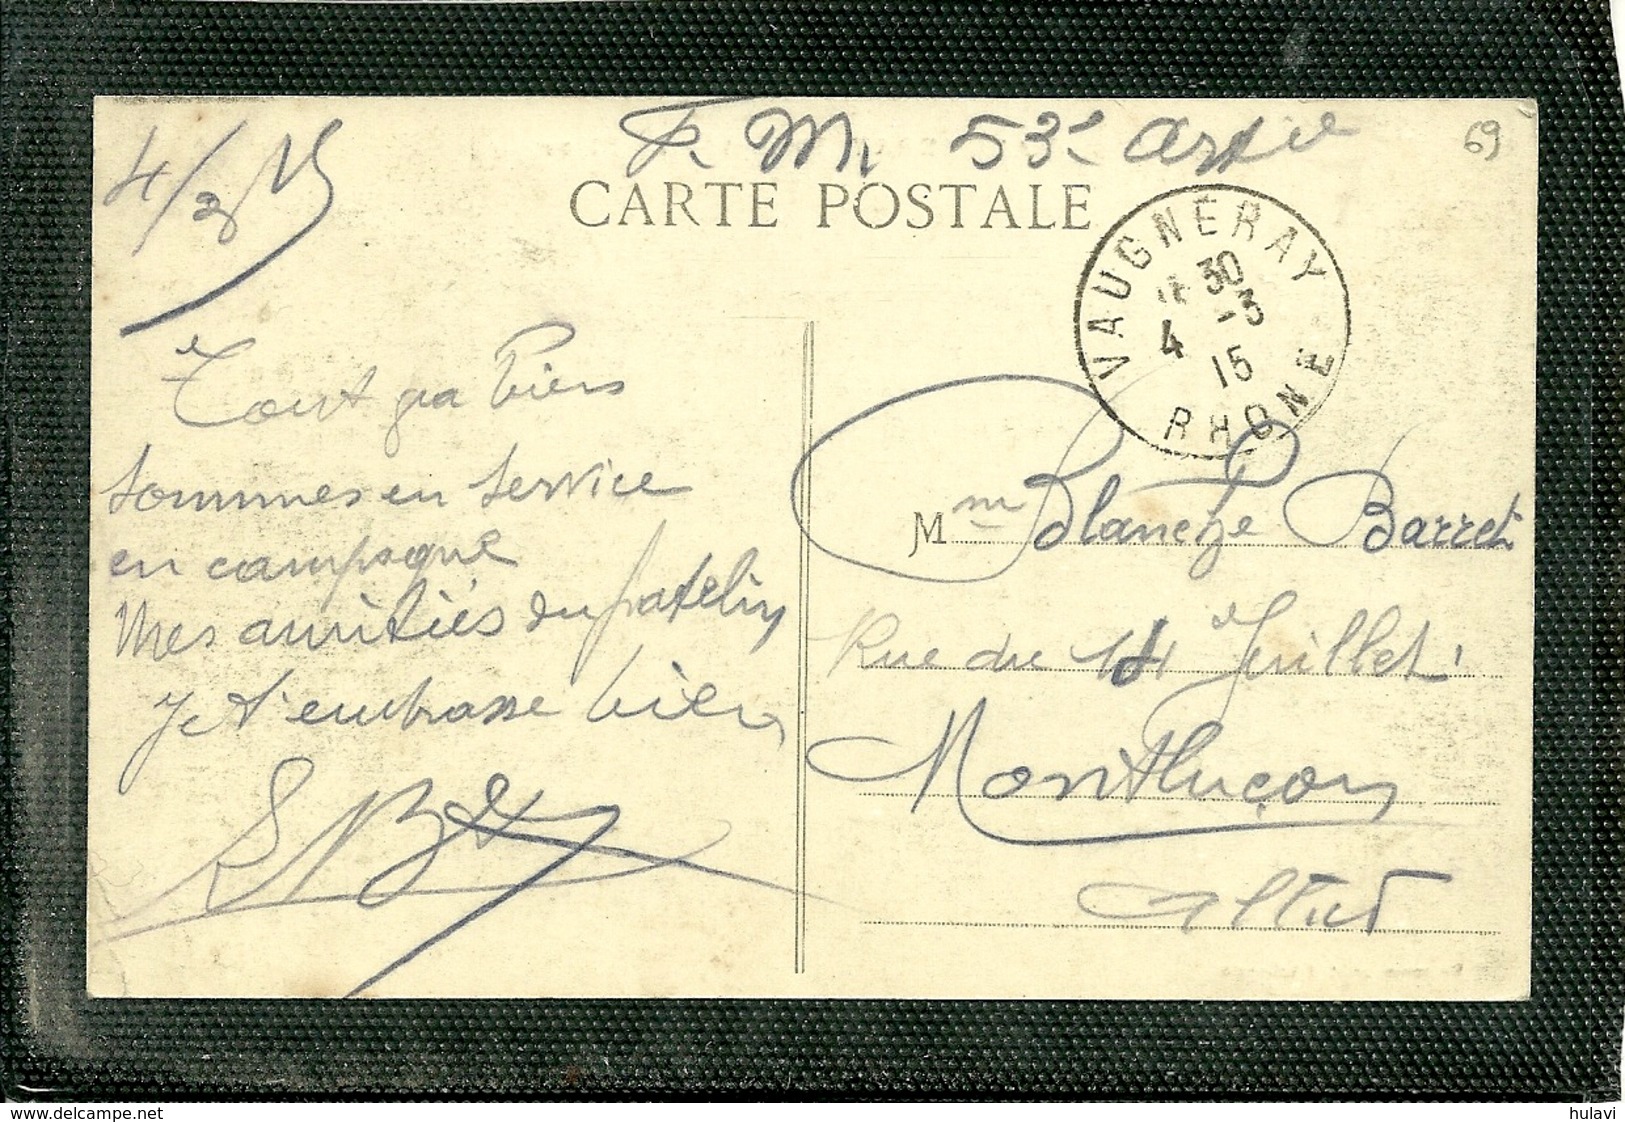 F. M. 53e
69
4/3 15
CARTE POSTALE
VAUGNERAY
30
4 -3
15
RHONE
Tout ga biens
sommes en service
en campagne
Mes amitiés au patelin
Je t'embrasse bien
Mme Blanche Barret
Rue du 14 Juillet
Montluçon
Allier
hulavi